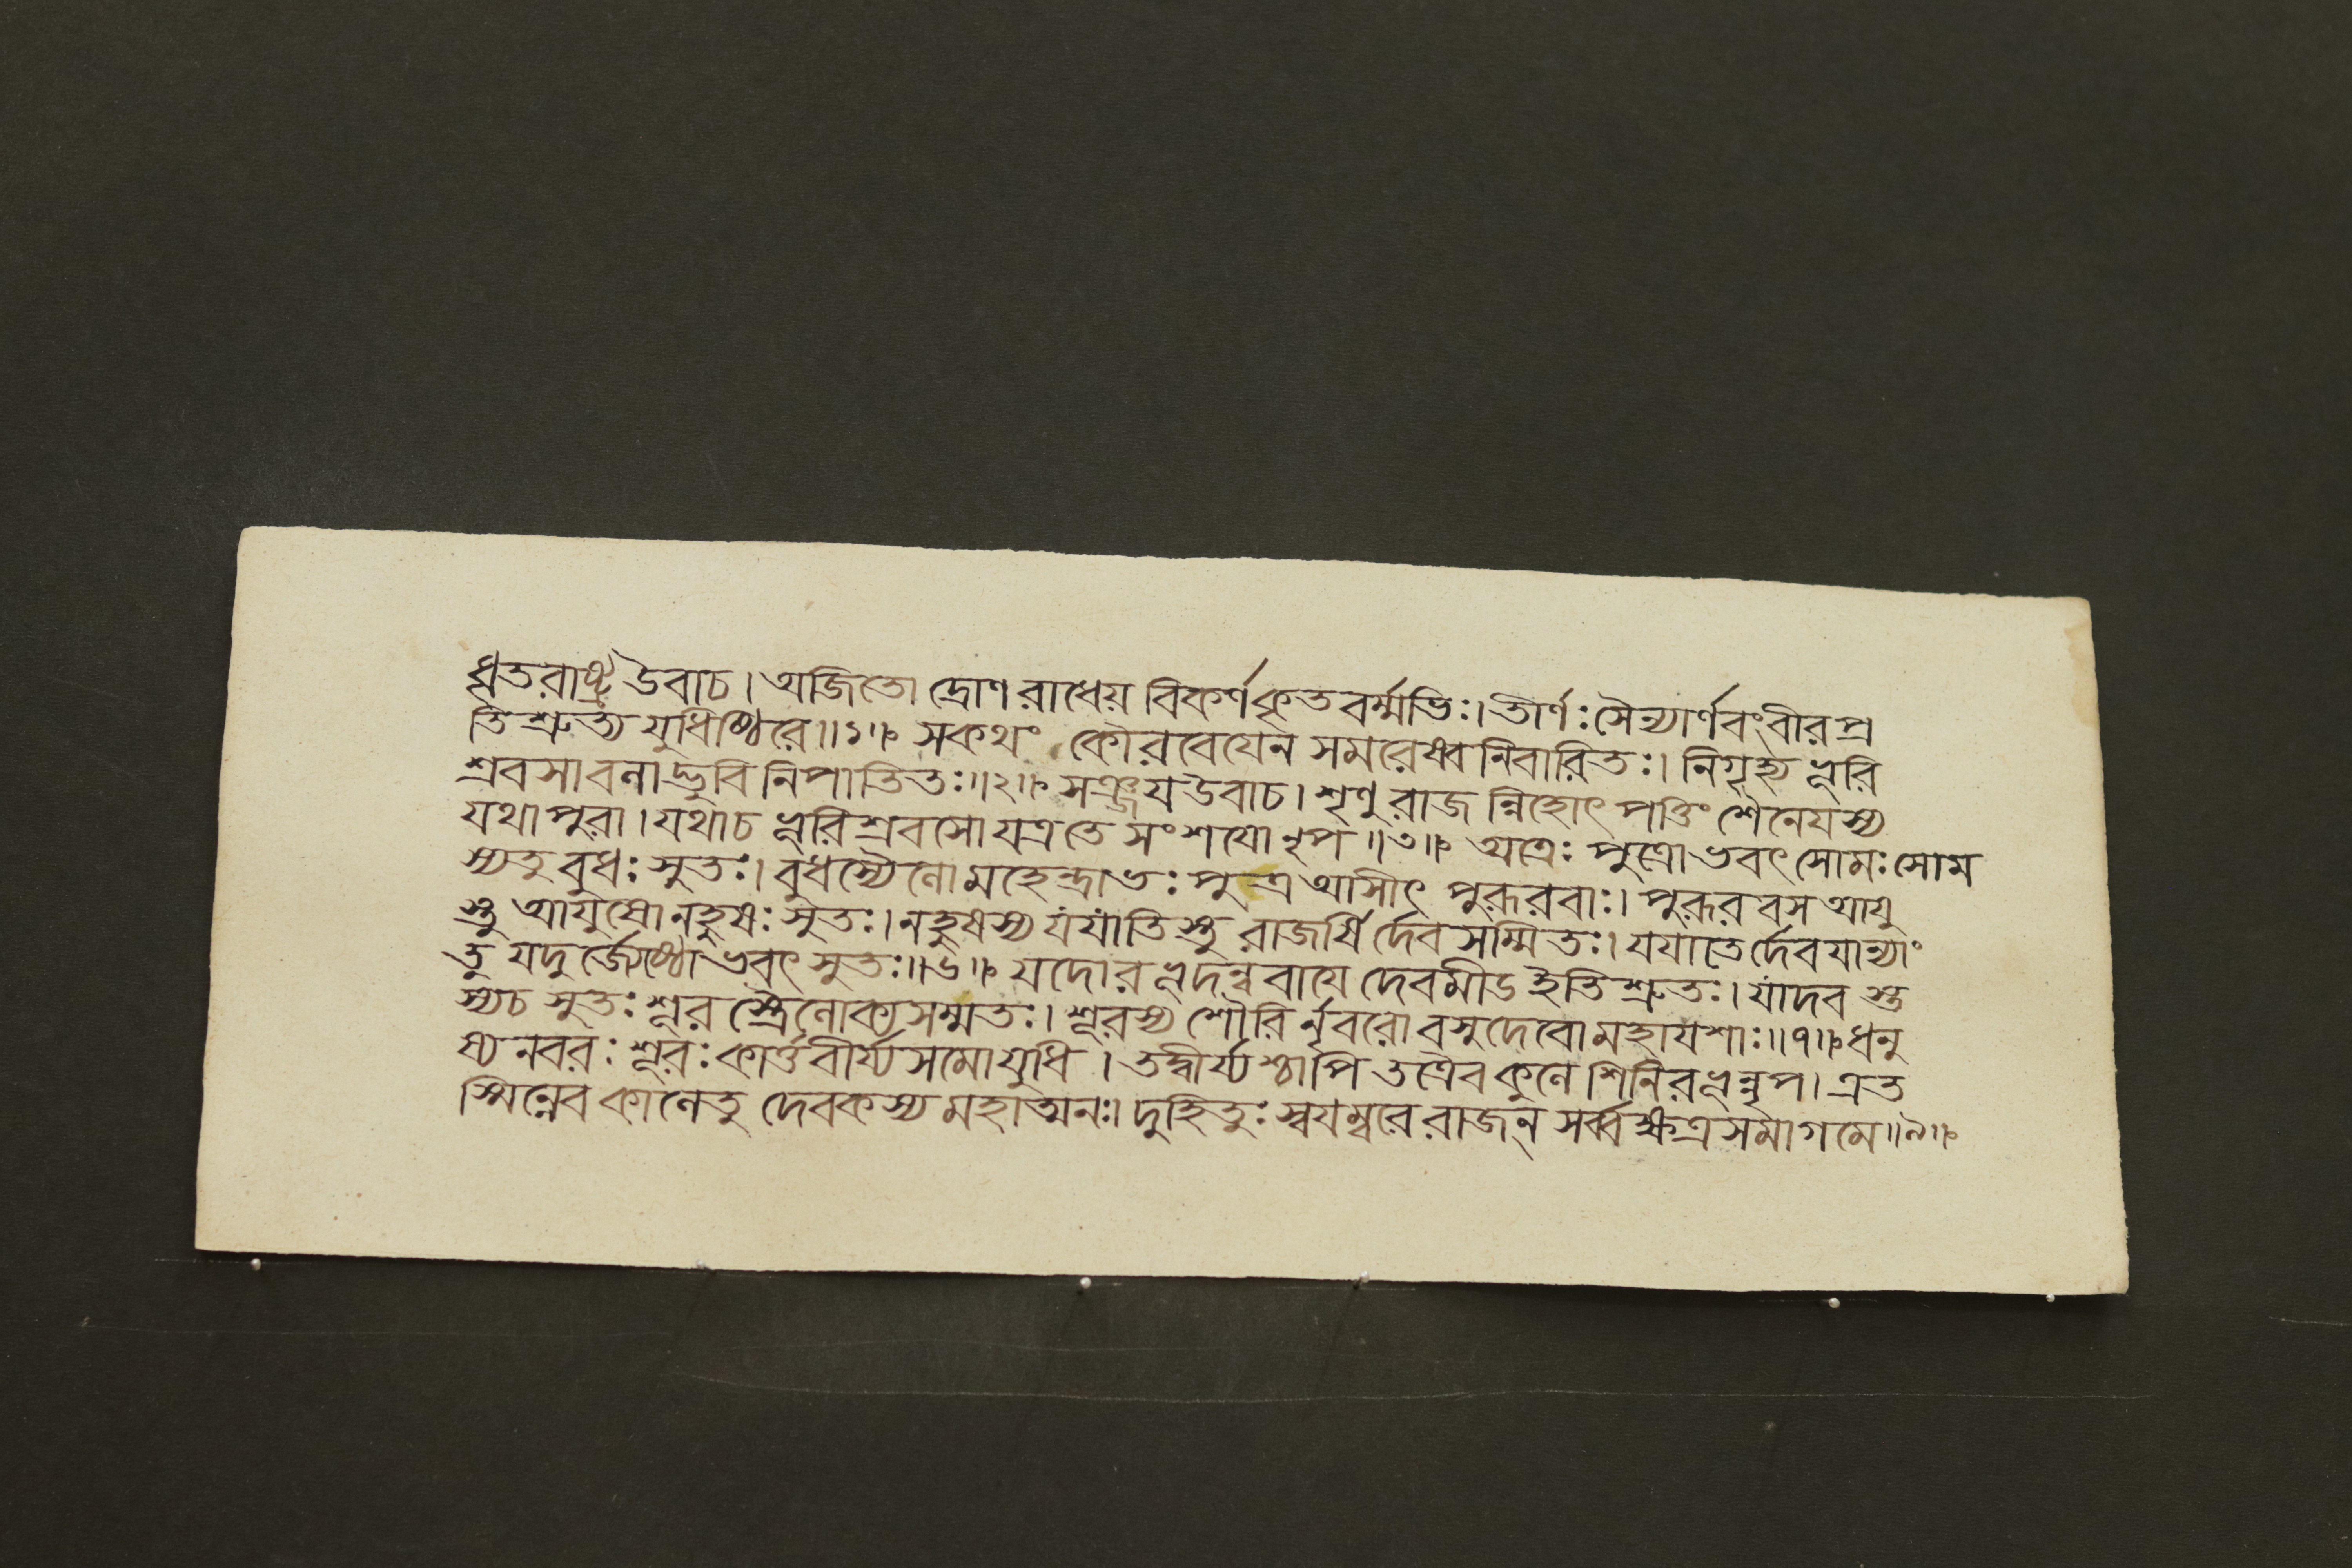 ধৃতরাষ্ট্র উবাচ। অজিতো দ্রোণ রাধেয় বিকর্ণ কৃতবর্ম্মভিঃ। তীর্ণঃ সৈন্যার্ণবং বীর প্র
তি শ্রুত্য যুধিষ্ঠিরে॥১॥ সকথং কৌরবেযেন সমরেষ্বনিবারিতঃ। নিগৃহ্য ভূরি
শ্রবসাবলাদ্ভুবি নিপাতিতঃ॥২॥ সঞ্জয উবাচ। শৃণু রাজ ন্নিহোৎ পত্তিং শৈনেযস্য
যথা পুরা। যথাচ ভূরি শ্রবসো যত্র তে সংশযো নৃপ॥৩॥ অত্রেঃ পুত্রো ভবৎ সোমঃ সোম
স্যতু বুধঃ সুতঃ। বুধস্যৈলো মহেন্দ্রাভঃ পুত্র আসীৎ পুরূরবাঃ। পুরূরবস আযু
স্তু আযুষো নহুষঃ সুতঃ। নহুষস্য যযাতি স্তু রাজর্ষি র্দেব সম্মিতঃ। যযাতে র্দেবযান্যাং
তু যদু র্জ্যেষ্ঠো ভবৎ সুতঃ॥৬॥ যদোরভূদন্ববাযে দেবমীঢ ইতি শ্রুতঃ। যাদব স্তু
স্যচ সুতঃ শূর স্ত্রৈলোক্য সম্মতঃ। শূরস্য শৌরি র্নৃবরো বসুদেবো মহাযশাঃ॥৭॥ ধনু
ষ্য নবরঃ শূরঃ কার্ত্তবীর্য্য সমো যুধি। তদ্বীর্য্য শ্চাপি তত্রৈব কুলে শিনিরভূন্নৃপ। এত
স্মিন্নেব কালেতু দেবকস্য মহাত্মনঃ। দুহিতুঃ স্বযম্বরে রাজন্ সর্ব্ব ক্ষত্র সমাগমে॥৯॥